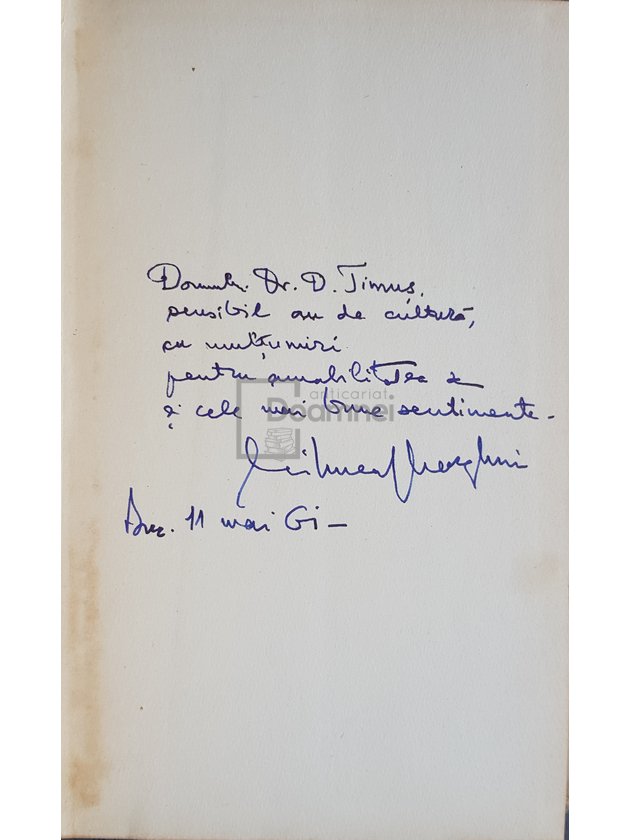 Domnului Dr. D. Timuș,
sensibil om de cultură,
cu mulțumiri
pentru amabilitatea sa
anticariat
Doamnei
și cele mai bune sentimente -
Mihnea Gheorghiu
Buc. 11 mai 61 -